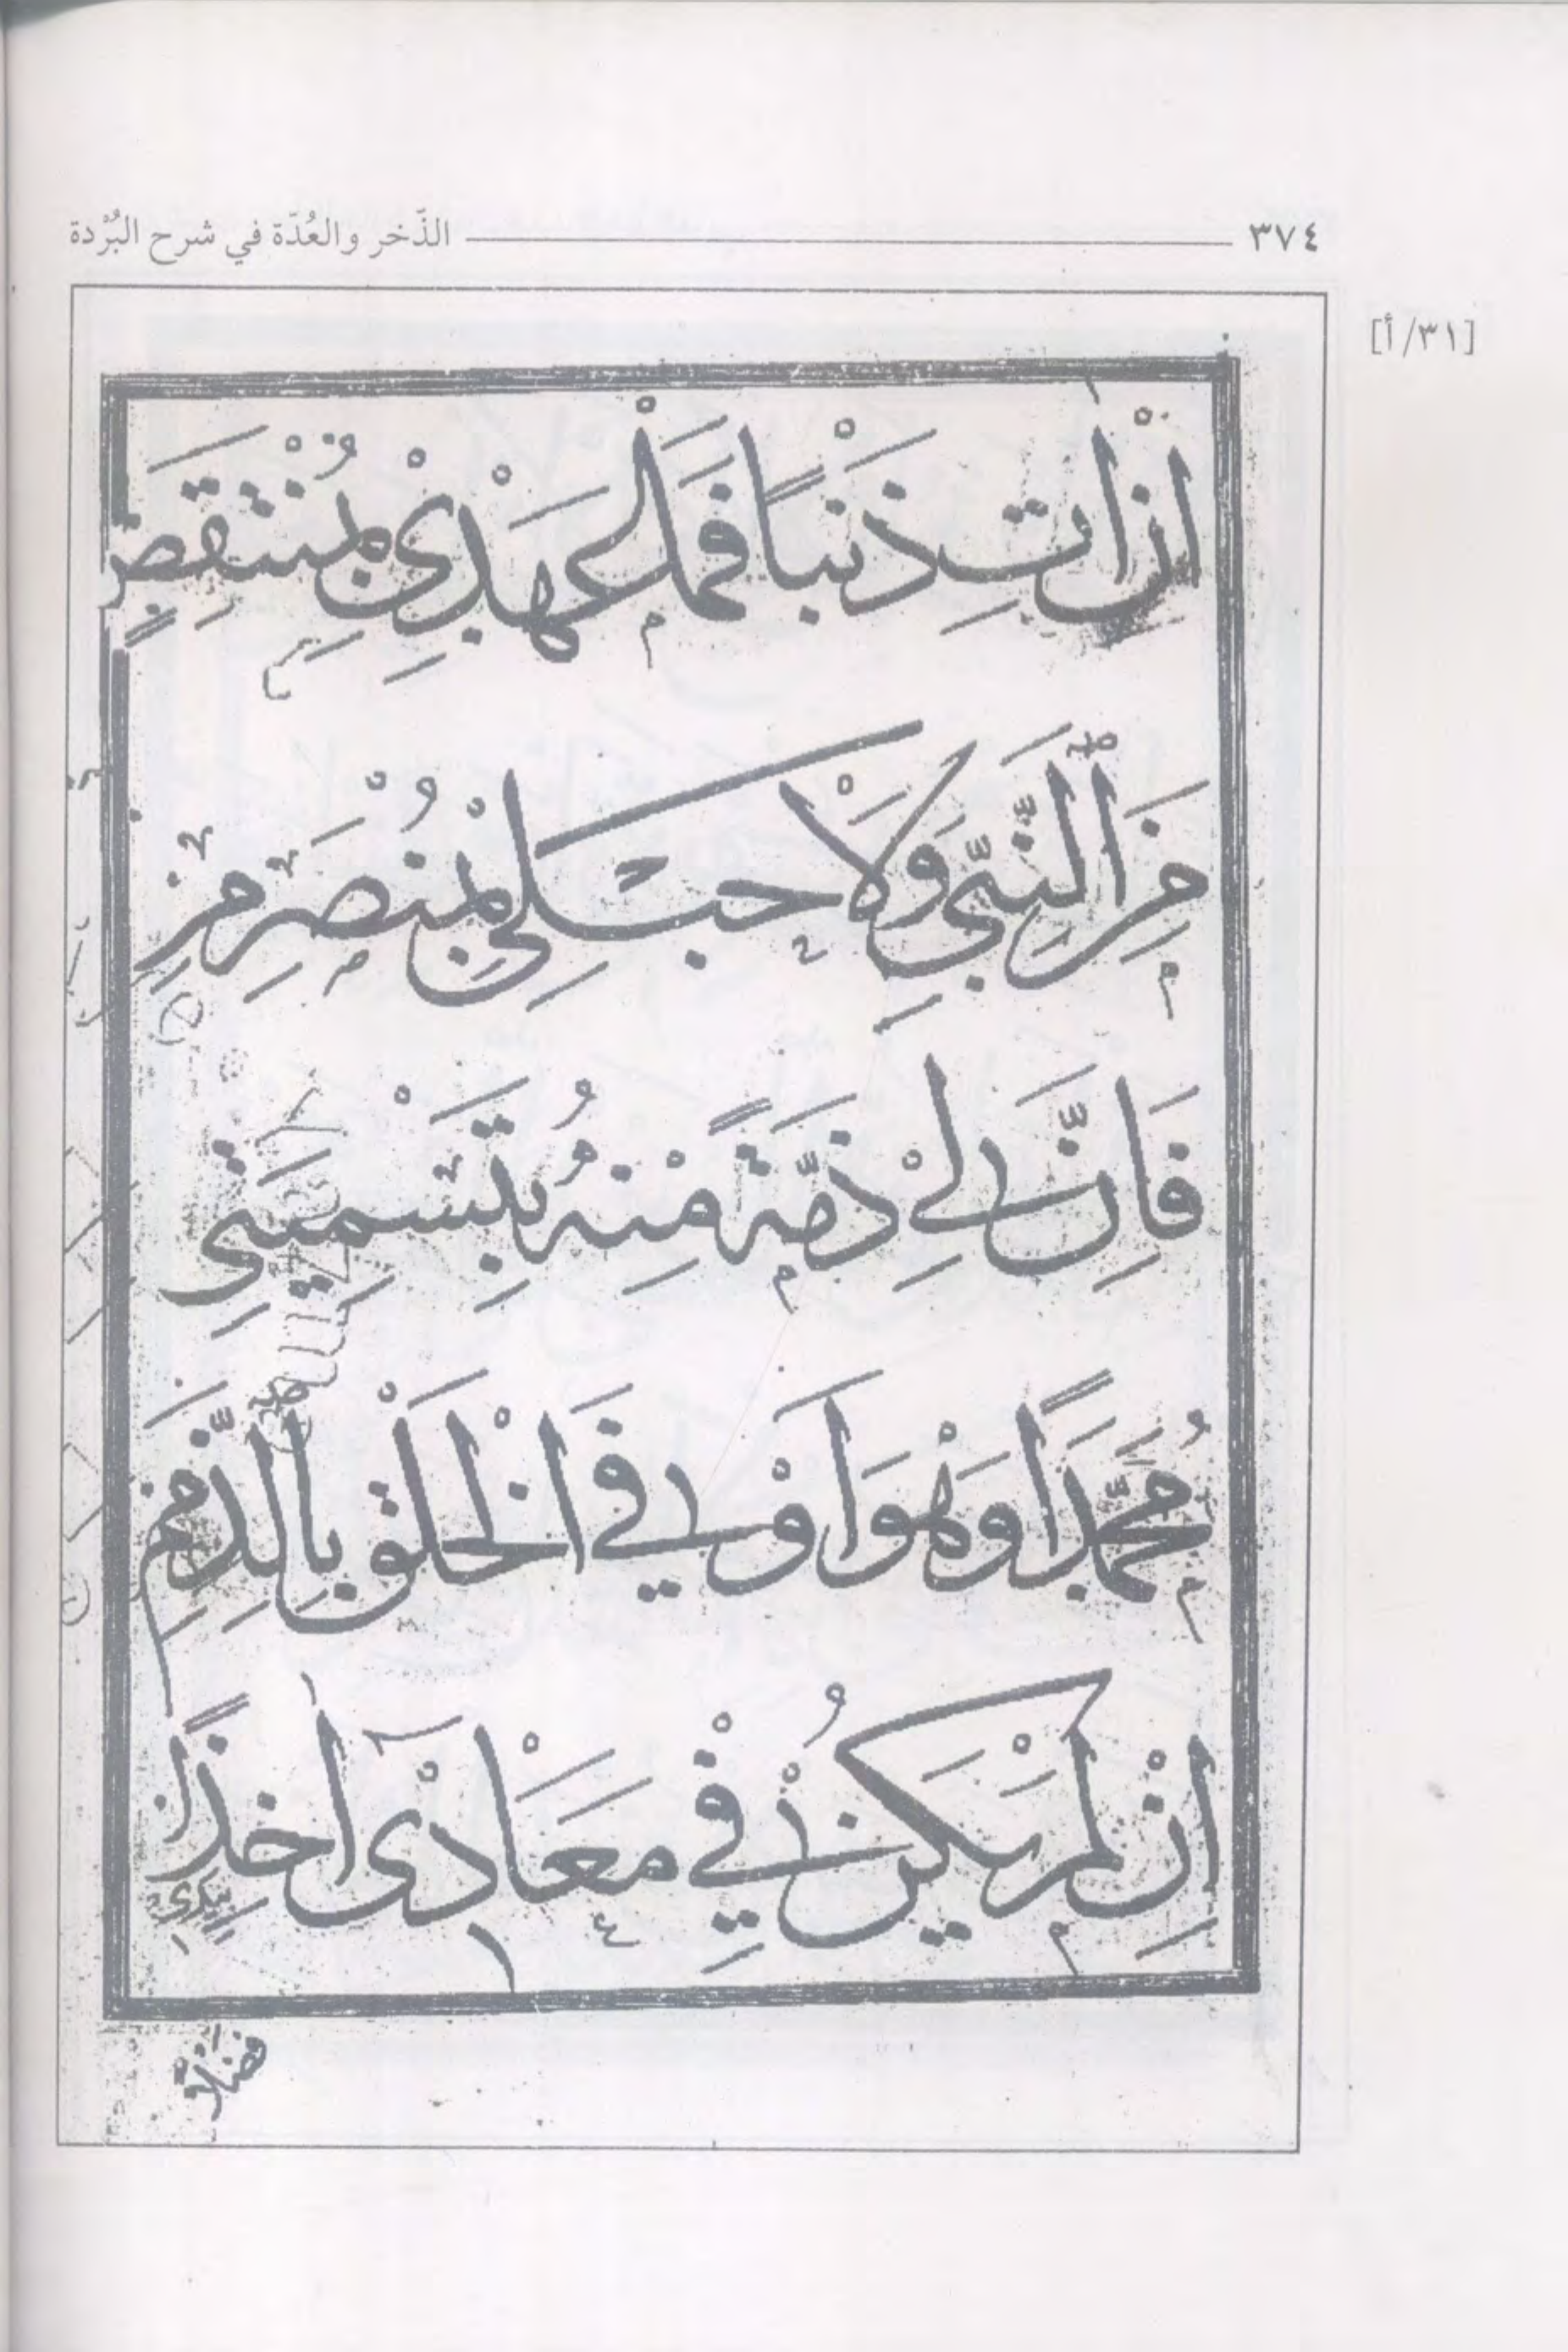 ٣٧٤ الذّخر والعُدّة في شرح البُرْدة
[٣١/أ]
اِنْ اٰتِ ذَنْبًا فَمَا عَهْدِيْ بِمُنْتَقِضٍ
مِنَ النَّبِيِّ وَلَاْ حَبْلِيْ بِمُنْصَرِمِ
فَاِنَّ لِيْ ذِمَّةً مِنْهُ بِتَسْمِيَتِي
مُحَمَّدًا وَهْوَ اَوْفَى الْخَلْقِ بِالذِّمَمِ
اِنْ لَمْ يَكُنْ فِيْ مَعَاْدِيْ آخِذًا
بِيَدِي
فضلًا